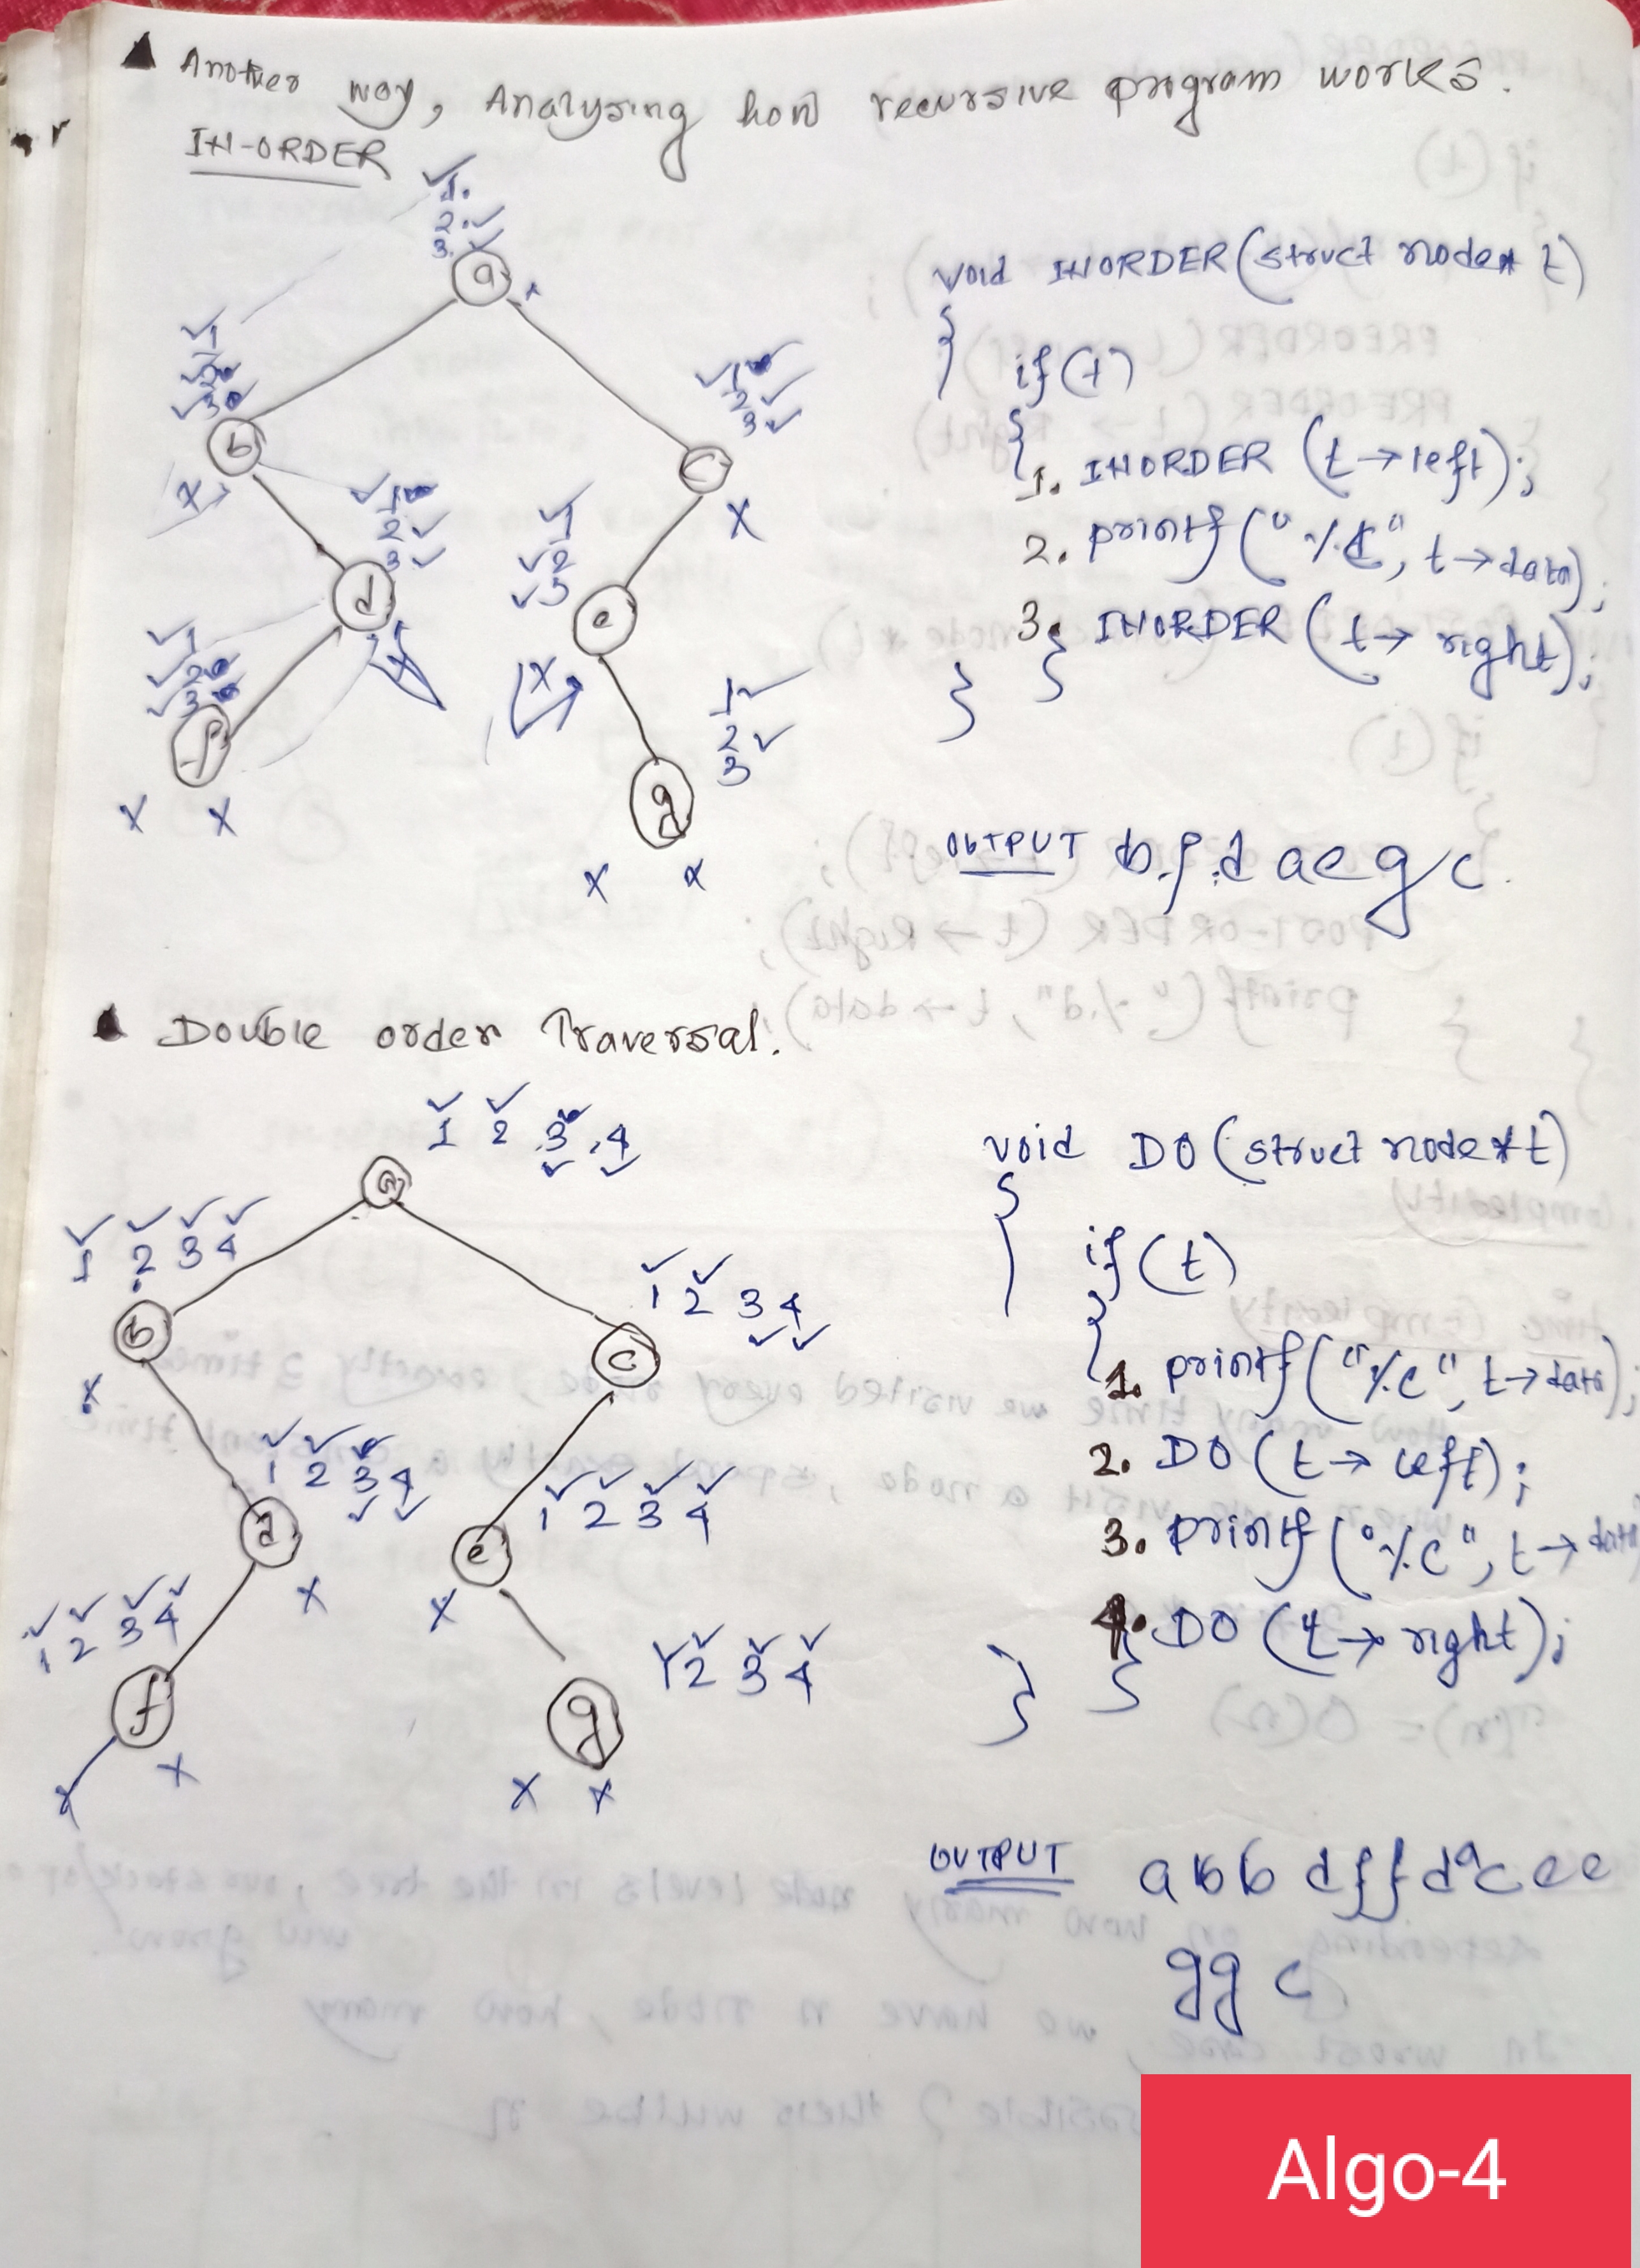 Another way, Analysing how recursive program works.
IN-ORDER
1.
2.
3.
a
1
2
3
b
1
2
3
c
x
x
1
2
3
d
1
2
3
e
x
x
1
2
3
f
x x
1
2
3
g
x x
void INORDER (struct node* t)
{
if (t)
{
1. INORDER (t→left);
2. printf ("%c", t→data);
3. INORDER (t→ right);
}
}
OUTPUT b f d a e g c
Double order Traversal.
1 2 3 4
a
1 2 3 4
b
x
1 2 3 4
c
1 2 3 4
d
x
1 2 3 4
e
x
1 2 3 4
f
x x
1 2 3 4
g
x x
void DO (struct node *t)
{
if (t)
{
1. printf ("%c", t→data);
2. DO (t→ left);
3. printf ("%c", t→ data
4. DO (t→ right);
}
}
OUTPUT a b b d f f d a c e e
g g c
Algo-4